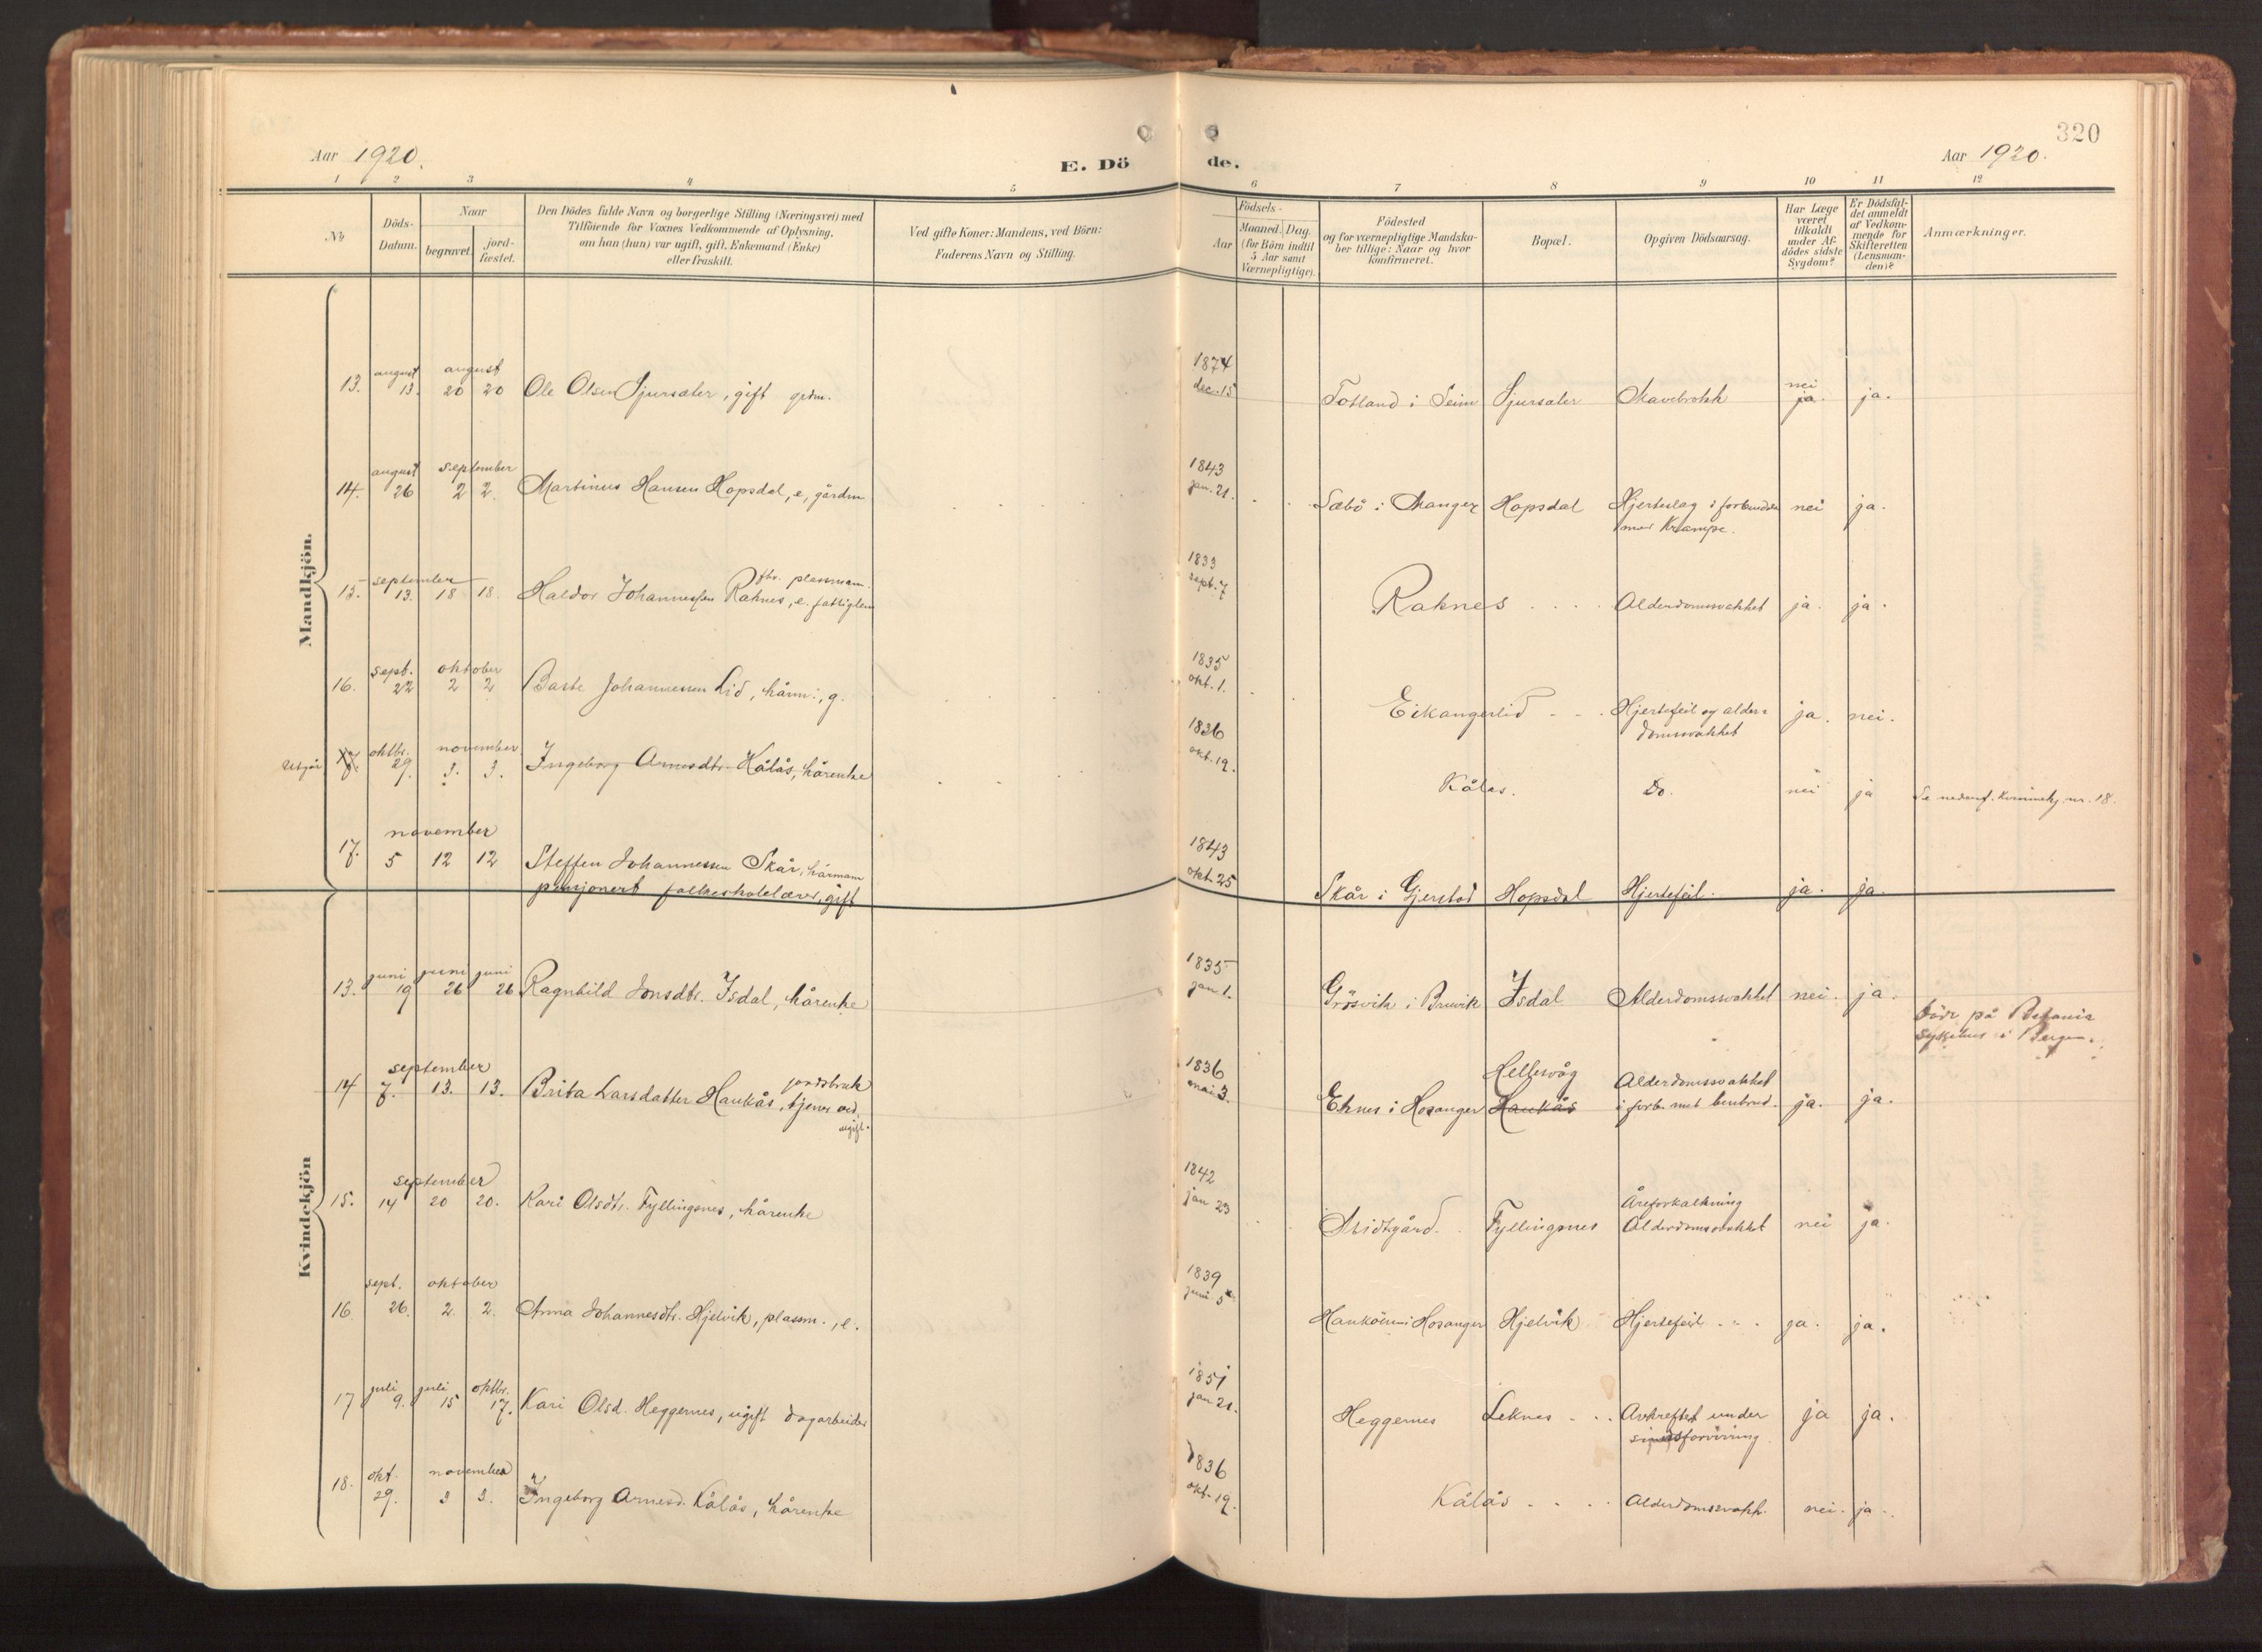 320
Aar 1920.
E. Dö
de.
Aar 1920.
1 2 3 4 5 6 7 8 9 10 11 12
No
Döds-
Datum.
Naar
begravet.
jord-
fæstet.
Den Dödes fulde Navn og borgerlige Stilling (Næringsvei) med
Tilföiende for Voxnes Vedkommende af Oplysning,
om han (hun) var ugift, gift, Enkemand (Enke)
eller fraskilt.
Ved gifte Koner: Mandens, ved Börn:
Faderens Navn og Stilling.
Födsels-
Aar
Maaned. Dag.
(for Börn indtil
5 Aar samt
Værnepligtige).
Födested
og for værnepligtige Mandska-
ber tillige: Naar og hvor
konfirmeret.
Bopæl.
Opgiven Dödsaarsag.
Har Læge
været
tilkaldt
under Af-
dödes sidste
Sygdom?
Er Dödsfal-
det anmeldt
af Vedkom-
mende for
Skifteretten
(Lensman-
den)?
Anmærkninger.
Mandkjön.
august august 1874
13. 13. 20 20 Ole Olsen Sjursæter, gift grdm. dec. 15 Totland i Seim Sjursæter nei ja. ja.
august september 1843
14. 26 2 2. Martinus Hansen Hopsdal, e, gårdm jan. 21. Sæbö i Manger Hopsdal Hjerteslag i forbindelse nei ja.
med Krampe.
september fhv. plassmann. 1833
15. 13. 18 18. Haldor Johannessen Raknes, e. fattiglem sept. 7 Raknes Alderdomssvakhet ja. ja.
sept. oktober 1835
16. 22 2 2 Baste Johannessen Lid, kårm., g. okt. 1. Eikangerlid Hjertefeil og alder= ja. nei.
domssvakhet
Utgår oktbr. november 1836
29. 3. 3. Ingeborg Arnesdtr. Kålås, kårenke okt. 19. Kålås. Do. nei ja Se nedenf. kvindekj. nr. 18.
november 1843
17. 5 12 12 Steffen Johannessen Skår, kårmann okt. 25 Skår i Gjerstad Hopsdal Hjertefeil. ja. ja.
pensjonert folkeskolelærer, gift
Kvindekjön
juni juni juni 1835
13. 19 26 26 Ragnhild Jonsdtr. Isdal, kårenke jan 1. Isdal Alderdomssvakhet nei. ja.
Döde på Betania
sykehus i Bergen.
september jordbruk 1836 Hellesvåg Alderdomssvakhet
14 7. 13. 13. Brita Larsdatter Haukås, tjener ved, mai 3. Eknes i Hosanger Haukås i forb. med benbrud. ja. ja.
ugift.
september 1842 Åreforkalkning
15. 14 20 20. Kari Olsdtr. Fyllingsnes, kårenke jan 23 Fyllingsnes Alderdomssvakhet nei ja.
sept. oktober 1839
16. 26. 2. 2. Anna Johannesdtr. Hjelvik, plassm., e. juni 5 Hosanger Hjelvik Hjertefeil ja. ja.
juli juli oktbr. 1851
17 9. 15 17. Kari Olsd. Heggernes, ugift dagarbeider jan 21. Heggernes Leknes Avkreftet under ja ja.
sindsforvirring.
okt. november 1836
18. 29. 3 3. Ingeborg Arnesd. Kålås, kårenke okt. 19. Kålås Alderdomssvakh. nei. ja.